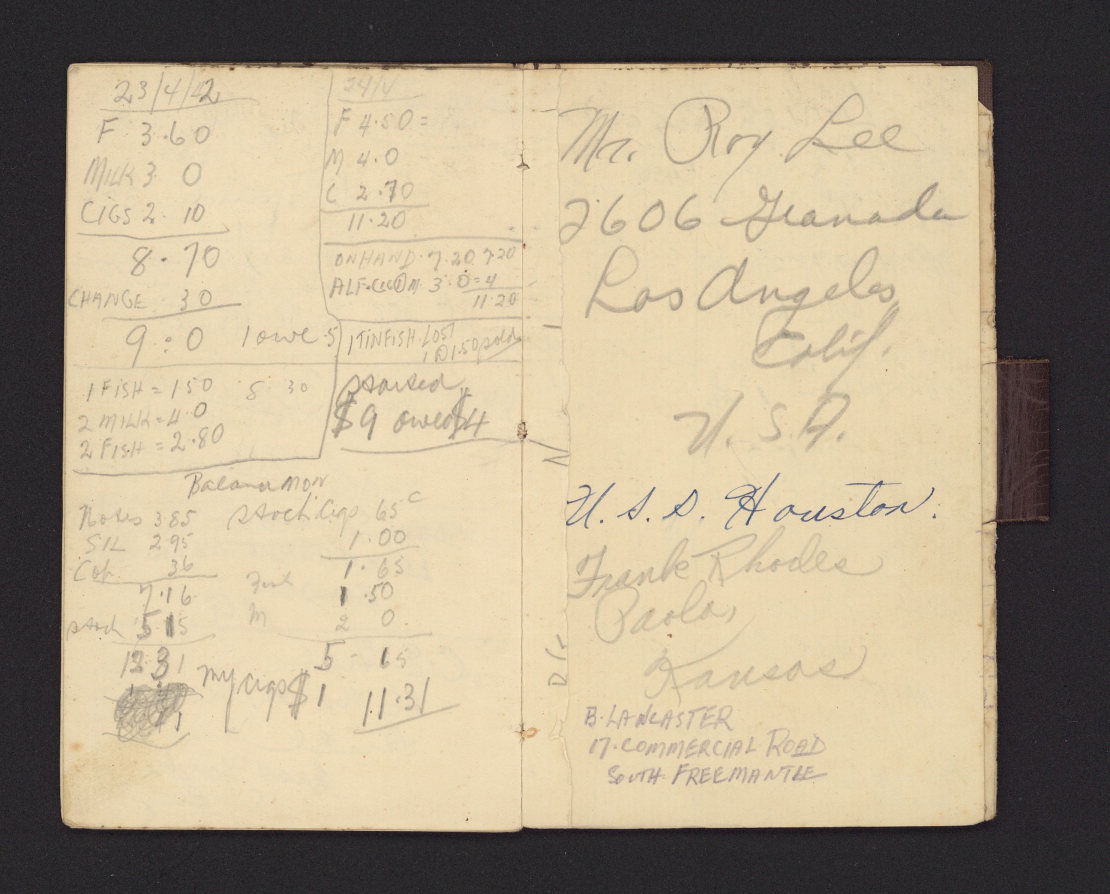 23/4/42
F 3.60
MILK 3 0
CIGS 2. 10
8.70
CHANGE 30
9:0 1 owe .5
1 FISH = 150 8 30
2 MILK = 4.0
2 FISH = 2.80
24/4
F 4.50 =
M 4.0
C 2.70
11.20
ON HAND. 7.20 7.20
ALF. M 3.0 = 4
11.20
1 TIN FISH LOST
1 @ 1.50 sold
started
$9 owed $4
Balance MON
Notes 385
SIL 295
Cop. 36
7.16
stock 515
12.31
Stock. Cigs 65c
1.00
1.65
Fish 1.50
M 2 0
5 - 15
my cigs $1 11.31
Mr. Roy Lee
2606 Granada
Los Angeles
Calif.
U.S.A.
U.S.S. Houston.
Frank Rhodes
Paola,
Kansas
B. LANCASTER
17. COMMERCIAL ROAD
SOUTH FREEMANTLE